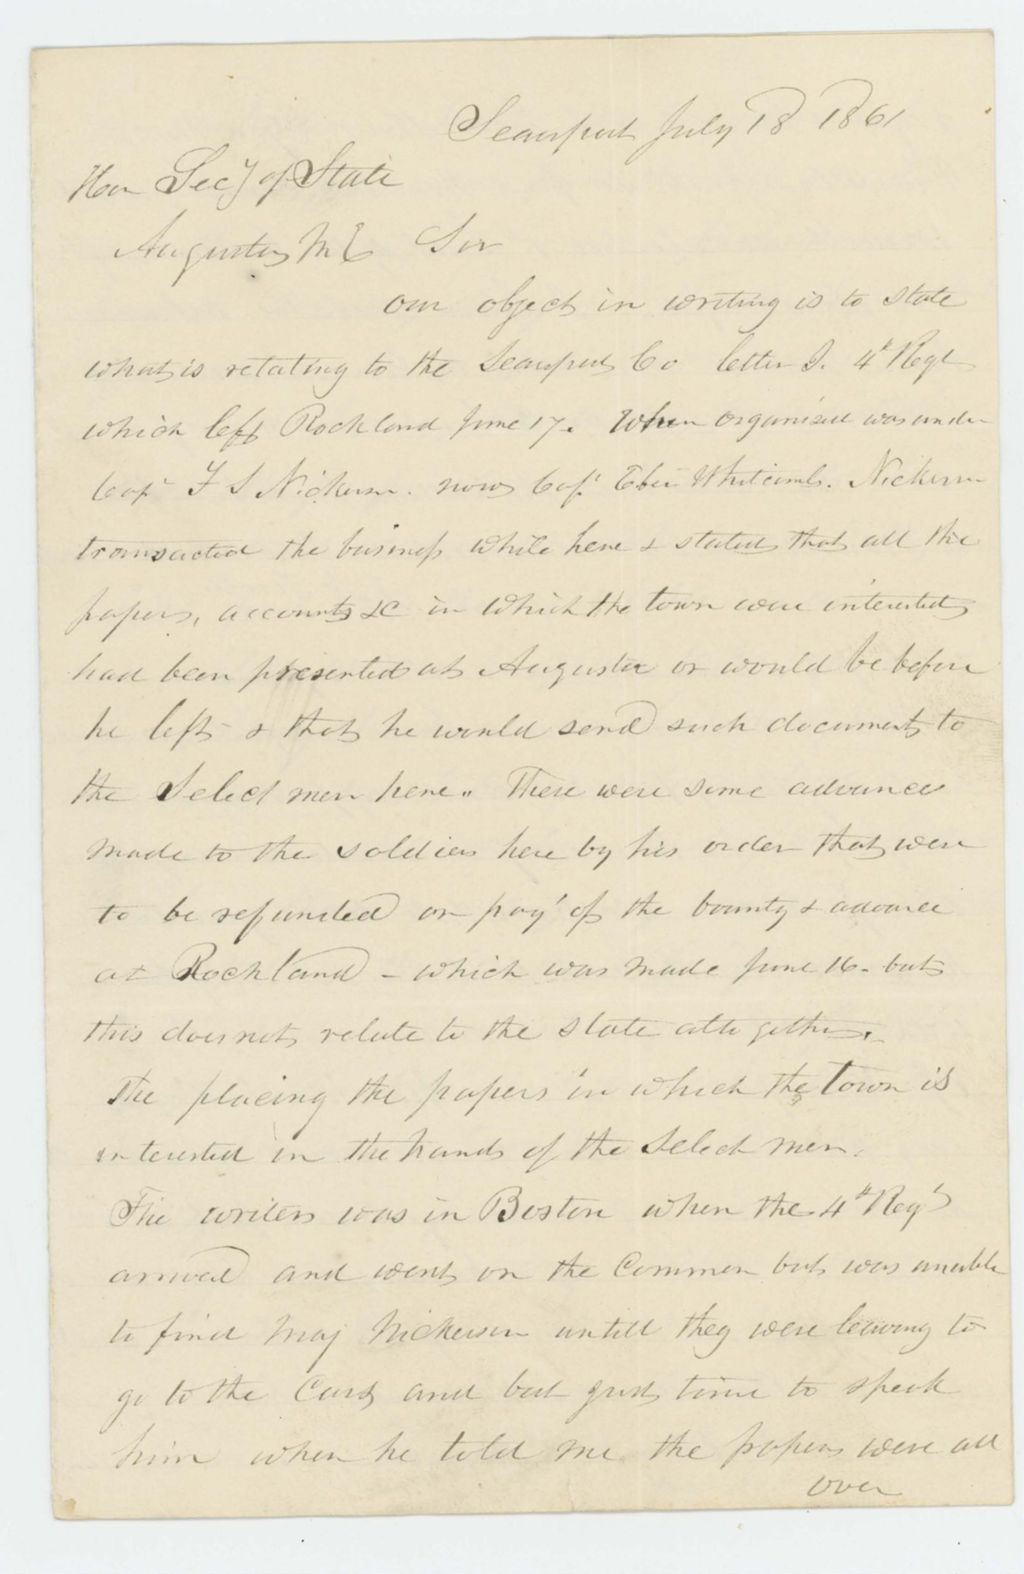 Searsport July 18 1861
Hon Secy of State
Augusta, ME Sir
our object in writing is to state
what is relating to the Searsport Co letter I. 4th Regt
which left Rockland June 17. When organized was under
Capt F S Nickerson. now Capt Eben Whitcomb. Nickerson
transacted the business while here & stated that all the
papers, accounts &c in which the town were interested
had been presented at Augusta or would be before
he left & that he would send such documents to
the Select men here.. There were some advances
made to the soldiers here by his order that were
to be refunded on pay't of the bounty & advance
at Rockland - which was made June 16 - but
this does not relate to the state altogether.
The placing the papers in which the town is
interested in the hands of the Select men.
The writer was in Boston when the 4th Regt
arrived and went on the Common but was unable
to find Maj Nickerson untill they were leaving to
go to the Cars and but just time to speak
him when he told me the papers were all
over